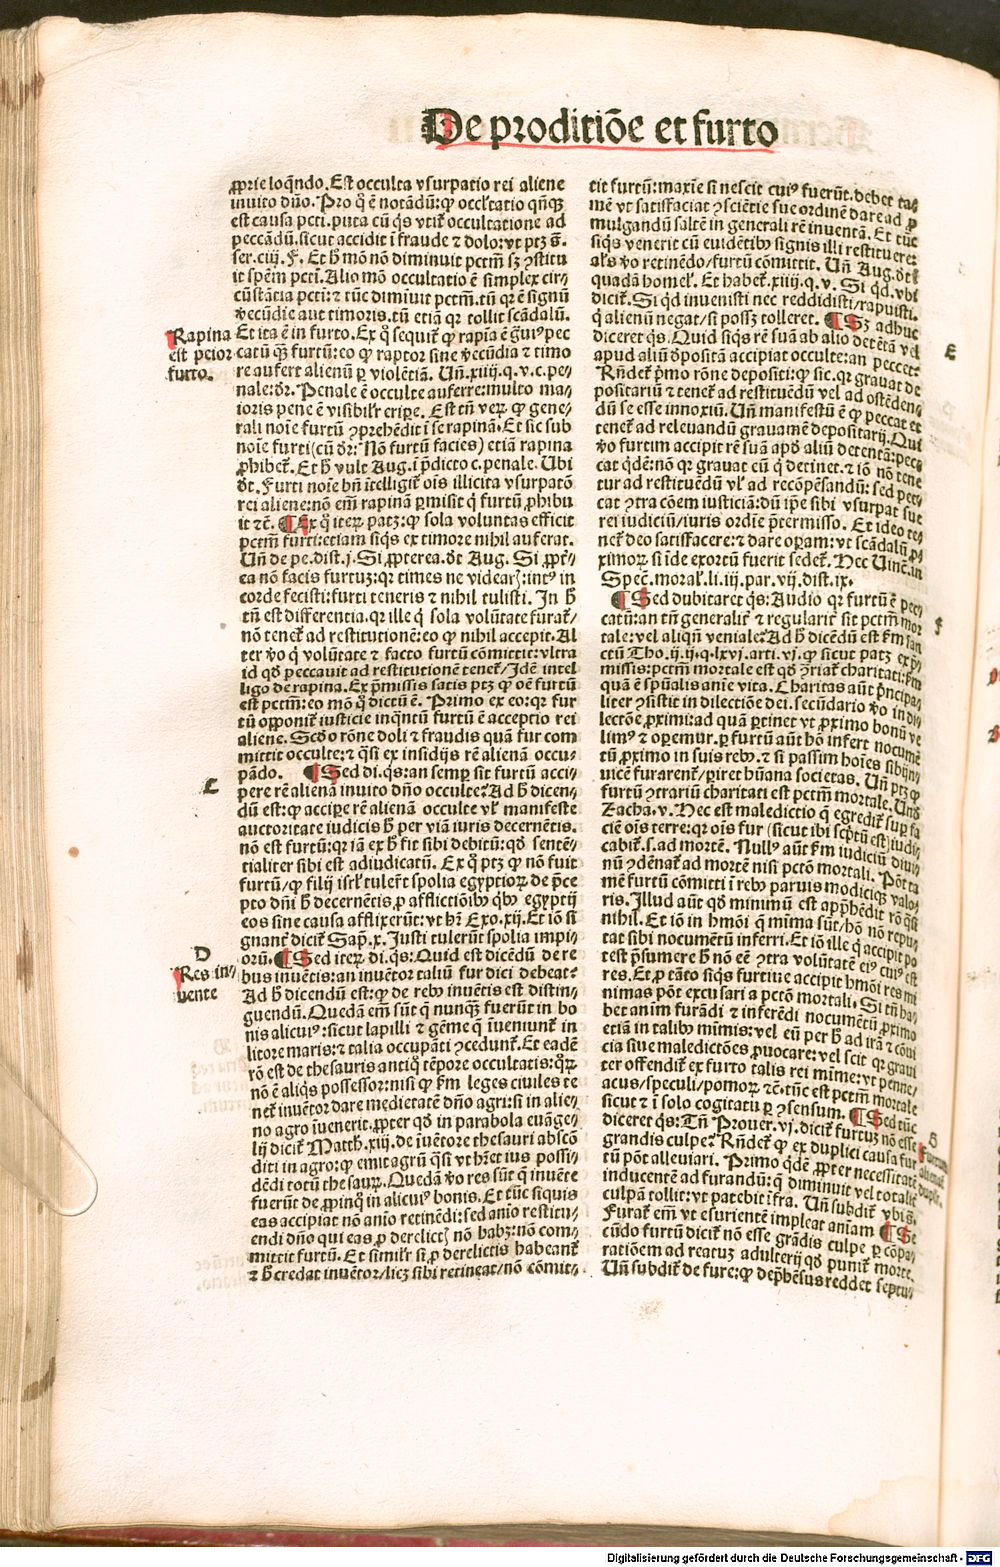 De proditiõe et furto
ꝓprie loq̃ndo. Est occulta vsurpatio rei aliene
inuito dño. Pro q̃ ẽ notãdũ: ꝙ occl̃tatio qñqꝫ
est causa pcti. puta cũ q̃s vtit̃ occultatione ad
peccãdũ. sicut accidit ĩ fraude ⁊ dolo: vt ptꝫ s̃.
ser. ciij. F. Et h̃ mõ nõ diminuit pctm̃ sꝫ ꝯstitu
it spẽm pcti. Alio mõ occultatio ẽ simplex cir⸗
cũstãtia pcti: ⁊ tũc dimiuit pctm̃. tũ qꝛ ẽ signũ
v̾ecũdie aut timoris. tũ etiã qꝛ tollit scãdalũ.
Rapina
est peior
furto.
Et ita ẽ in furto. Ex q̊ sequit̃ ꝙ rapĩa ẽ g̾uiꝰ pec
catũ qꝫ̃ furtũ: eo ꝙ raptor sine v̾ecũdia ⁊ timo
re aufert alienũ ꝑ violẽtiã. Vñ. xiiij. q. v. c. pe⸗
nale: dr̃. Penale ẽ occulte auferre: multo ma⸗
ioris pene ẽ visibilr̃ eripe. Est tñ veꝝ ꝙ gene⸗
rali noĩe furtũ ꝯprehẽdit ĩ se rapinã. Et sic sub
noĩe furti (cũ dr̃: Nõ furtũ facies) etiã rapina
ꝓhibet̃. Et h̃ vult Aug. ĩ p̃dicto c. penale. Vbi
d̃t. Furti noĩe bñ ĩtelligit̃ oĩs illicita vsurpatõ
rei aliene: nõ em̃ rapinã ꝑmisit q̃ furtũ ꝓhibu
it ⁊c̃. ¶ Ex q̊ iteꝝ patꝫ: ꝙ sola voluntas efficit
pctm̃ furti: etiam siq̃s ex timore nihil auferat.
Vñ de pe. dist. j. Si ꝓpterea. d̃t Aug. Si ꝓpt̃⸗
ea nõ facis furtuꝫ: qꝛ times ne videar̃: intꝰ in
corde fecisti: furti teneris ⁊ nihil tulisti. In h̃
tñ est differentia. qꝛ ille q̃ sola volũtate furat̃/
nõ tenet̃ ad restitutionẽ: eo ꝙ nihil accepit. Al
ter v̾o q̃ volũtate ⁊ facto furtũ cõmittit: vltra
id qd̾ peccauit ad restitutionẽ tenet̃. Idẽ intel
ligo de rapina. Ex p̃missis satis ptꝫ ꝙ oẽ furtũ
est pctm̃: eo mõ q̊ dictũ ẽ. Primo ex eo: qꝛ fur
tũ opponit̃ iusticie inq̃ntũ furtũ ẽ acceptio rei
aliene. Scd̾o rõne doli ⁊ fraudis quã fur com
mittit occulte: ⁊ q̃si ex insidijs rẽ alienã occu⸗
pãdo. ¶ Sed di. q̃s: an semꝑ sit furtũ acci⸗
C
pere rẽ alienã inuito dño occulte? Ad h̃ dicen⸗
dũ est: ꝙ accipe rẽ alienã occulte vl̃ manifeste
auctoritate iudicis h̃ per viã iuris decernẽtis.
nõ est furtũ: qꝛ iã ex h̃ fit sibi debitũ: qd̾ sentẽ⸗
tialiter sibi est adiudicatũ. Ex q̊ ptꝫ ꝙ nõ fuit
furtũ/ꝙ filij isrl̃ tuler̃t spolia egyptioꝝ de p̃ce
pto dñi h̃ decernẽtis ꝓ afflictiõibꝰ q̃bꝰ egyptij
eos sine causa afflixerũt: vt hr̃ Exo. xij. Et iõ si
gnant̃ dicit̃ Sap̃. x. Justi tulerũt spolia impi⸗
orũ. ¶ Sed iteꝝ di. q̃s: Quid est dicẽdũ de re
D
Res in⸗
uente
bus inuẽtis: an inuẽtor taliũ fur dici debeat?
Ad h̃ dicendũ est: ꝙ de rebꝰ inuẽtis est distin⸗
guendũ. Quedã em̃ sũt q̃ nunqꝫ̃ fuerũt in bo
nis alicuiꝰ: sicut lapilli ⁊ gẽme q̃ ĩueniunt̃ in
litore maris: ⁊ talia occupãti ꝯcedunt̃. Et eadẽ
rõ est de thesauris antiq̊ tẽpore occultatis: q̊ꝝ
nõ ẽ aliq̃s possessor: nisi ꝙ fm̃ leges ciuiles te
net̃ inuẽtor dare medietatẽ dño agri: si in alie⸗
no agro ĩuenerit. ꝓpter qd̾ in parabola euãge⸗
lij dicit̃ Matth. xiij. de ĩuẽtore thesauri abscõ
diti in agro: ꝙ emit agrũ q̃si vt hr̃et ius possi⸗
dẽdi totũ thesauꝝ. Quedã v̾o res sũt q̃ inuẽte
fuerũt de ꝓpinq̊ in alicuiꝰ bonis. Et tũc si quis
eas accipiat nõ anĩo retinẽdi: sed anĩo restitu⸗
endi dño qui eas ꝓ derelict̃ nõ habꝫ: nõ com⸗
mittit furtũ. Et similr̃ si ꝓ derelictis habeant̃
⁊ h̃ credat inuẽtor/licꝫ sibi retineat/nõ cõmit⸗
tit furtũ: maxĩe si nescit cuiꝰ fuerũt. debet ta⸗
mẽ vt satisfaciat ꝯsciẽtie sue ordinẽ dare ad ꝓ
mulgandũ saltẽ in generali rẽ inuentã. Et tũc
siq̃s venerit cũ euidẽtibꝰ signis illi restituere:
al̃s v̾o retinẽdo/furtũ cõmittit. Vñ Aug. d̃t ĩ
quadã homel̃. Et habet̃. xiiij. q. v. Si qd̾. vbi
dicit̃. Si qd̾ inuenisti nec reddidisti/rapuisti.
q̃ alienũ negat/si possꝫ tolleret. ¶ Sꝫ adhuc
E
diceret q̃s. Quid siq̃s rẽ suã ab alio detẽtã vel
apud aliũ d̾positã accipiat occulte: an peccet?
Rñdet̃ p̃mo rõne depositi: ꝙ sic. qꝛ grauat de
positariũ ⁊ tenet̃ ad restituẽdũ vel ad ostẽden⸗
dũ se esse innoxiũ. Vñ manifestũ ẽ ꝙ peccat et
tenet̃ ad releuandũ grauamẽ depositarij. Qui
v̾o furtim accipit rẽ suã apd̾ aliũ detentã: pec⸗
cat q̃dẽ: nõ qꝛ grauat eũ q̃ detinet. ⁊ iõ nõ tene
tur ad restituẽdũ vl̃ ad recõpẽsandũ: sed pec⸗
cat ꝯtra cõem iusticiã: dũ ip̃e sibi vsurpat sue
rei iudiciũ/iuris ordĩe p̃termisso. Et ideo te⸗
net̃ deo satisfacere: ⁊ dare oꝑam: vt scãdalũ ꝓ
ximoꝝ si ĩde exortũ fuerit sedet̃. Hec Vincẽ. in
Spec̃. moral̃. li. iij. par. vij. dist. ix.
¶ Sed dubitaret q̃s: Audio qꝛ furtũ ẽ pec⸗
F
catũ: an tñ generalit̃ ⁊ regularit̃ sit pctm̃ mor
tale: vel aliqñ veniale? Ad h̃ dicẽdũ est fm̃ san
ctũ Tho. ij. ij. q. lxvj. arti. vj. ꝙ sicut patꝫ ex p̃⸗
missis: pctm̃ mortale est qd̾ ꝯ̃riat̃ charitati: fm̃
quã ẽ spũalis anĩe vita. Charitas aũt p̃ncipa⸗
liter ꝯsistit in dilectiõe dei. secũdario v̾o in di⸗
lectõe ꝓximi: ad quã ꝑtinet vt ꝓximo bonũ ve
limꝰ ⁊ oꝑemur. ꝑ furtũ aũt hõ infert nocumẽ
tũ ꝓximo in suis rebꝰ. ⁊ si passim hoĩes sibijn⸗
uicẽ furarent̃/ꝑiret hũana societas. Vñ ptꝫ ꝙ
furtũ ꝯtrariũ charitati est pctm̃ mortale. Vnd̾
Zacha. v. Hec est maledictio q̃ egredit̃ suꝑ fa
ciẽ oĩs terre: qꝛ oĩs fur (sicut ibi scp̃tũ est) iudi⸗
cabit̃. s. ad mortẽ. Nullꝰ aũt fm̃ iudiciũ diui⸗
nũ ꝯdẽnat̃ ad mortẽ nisi pctõ mortali. Põt ta
mẽ furtũ cõmitti ĩ rebꝰ paruis modiciqꝫ valo⸗
ris. Illud aũt qd̾ minimũ est app̃hẽdit rõ q̃si
nihil. Et iõ in hmõi q̃ mĩma sũt/hõ nõ repu⸗
tat sibi nocumẽtũ inferri. Et iõ ille q̃ accipit po
test p̃sumere h̃ nõ eẽ ꝯtra volũtatẽ eiꝰ cuiꝰ est
res. Et ꝓ tãto siq̃s furtiue accipit hmõi res mi
nimas põt excusari a pctõ mortali. Si tñ ha⸗
bet anim̃ furãdi ⁊ inferẽdi nocumẽtũ ꝓximo
etiã in talibꝰ mĩmis: vel eũ per h̃ ad irã ⁊ cõui
cia siue maledictões ꝓuocare: vel scit qꝛ graui
ter offendit̃ ex furto talis rei mĩme: vt penne/
acus/speculi/pomoꝝ ⁊c̃. tũc est pctm̃ mortale
sicut ⁊ ĩ solo cogitatu ꝑ ꝯsensum. ¶ Sed tũc
G
Furtum
diceret q̃s: Tñ Prouer. vj. dicit̃ furtuꝫ nõ esse
grandis culpe? Rñdet̃ ꝙ ex duplici causa fur
tũ põt alleuiari. Primo q̃dẽ ꝓpter necessitatẽ
inducentẽ ad furandũ: q̃ diminuit vel totalit̃
culpã tollit: vt patebit ĩfra. Vñ subdit̃ vbi s̃.
Furat̃ em̃ vt esurientẽ impleat anĩam ¶ Se
cũdo furtũ dicit̃ nõ esse grãdis culpe ꝑ cõpa⸗
ratiõem ad reatuꝫ adulterij qd̾ punit̃ morte.
Vñ subdit̃ de fure: ꝙ dep̃hẽsus reddet septu⸗
Digitalisierung gefördert durch die Deutsche Forschungsgemeinschaft - DFG